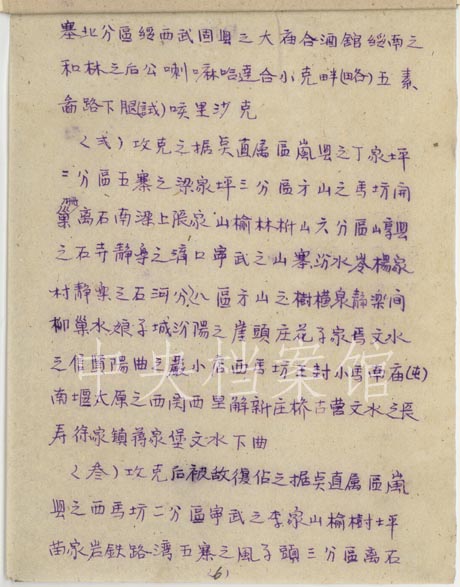 塞北分區綏西武固县之大庙合酒館綏南之
和林之后公喇嘛啥連合小克畔(略)五素
畣路下腿(試)唉里沙克
〈弍〉攻克之据奌直属區嵐县之丁家坪
二分區五寨之梁家坪三分區方山之馬坊開
離石南梁上張家山榆林村山六分區崞县
之石寺静寧之済口寧武之山寨汾水岺楊家
村静楽之石河分八區方山之樹横泉静楽间
柳巢水娘子城汾陽之崖頭庄花子家焉文水
之信曲陽曲之嚴小店西馬坊王封小馬西庙(屯)
南堰太原之西関西里解新庄桥古营文水之長
寿徐家镇蒋家堡文水下曲
〈叁〉攻克后被敌復佔之据奌直属區嵐
县之西馬坊二分區寧武之李家山榆樹坪
苗家岩鉄路湾五寨之風子頭三分區离石
(6)
中央档案馆